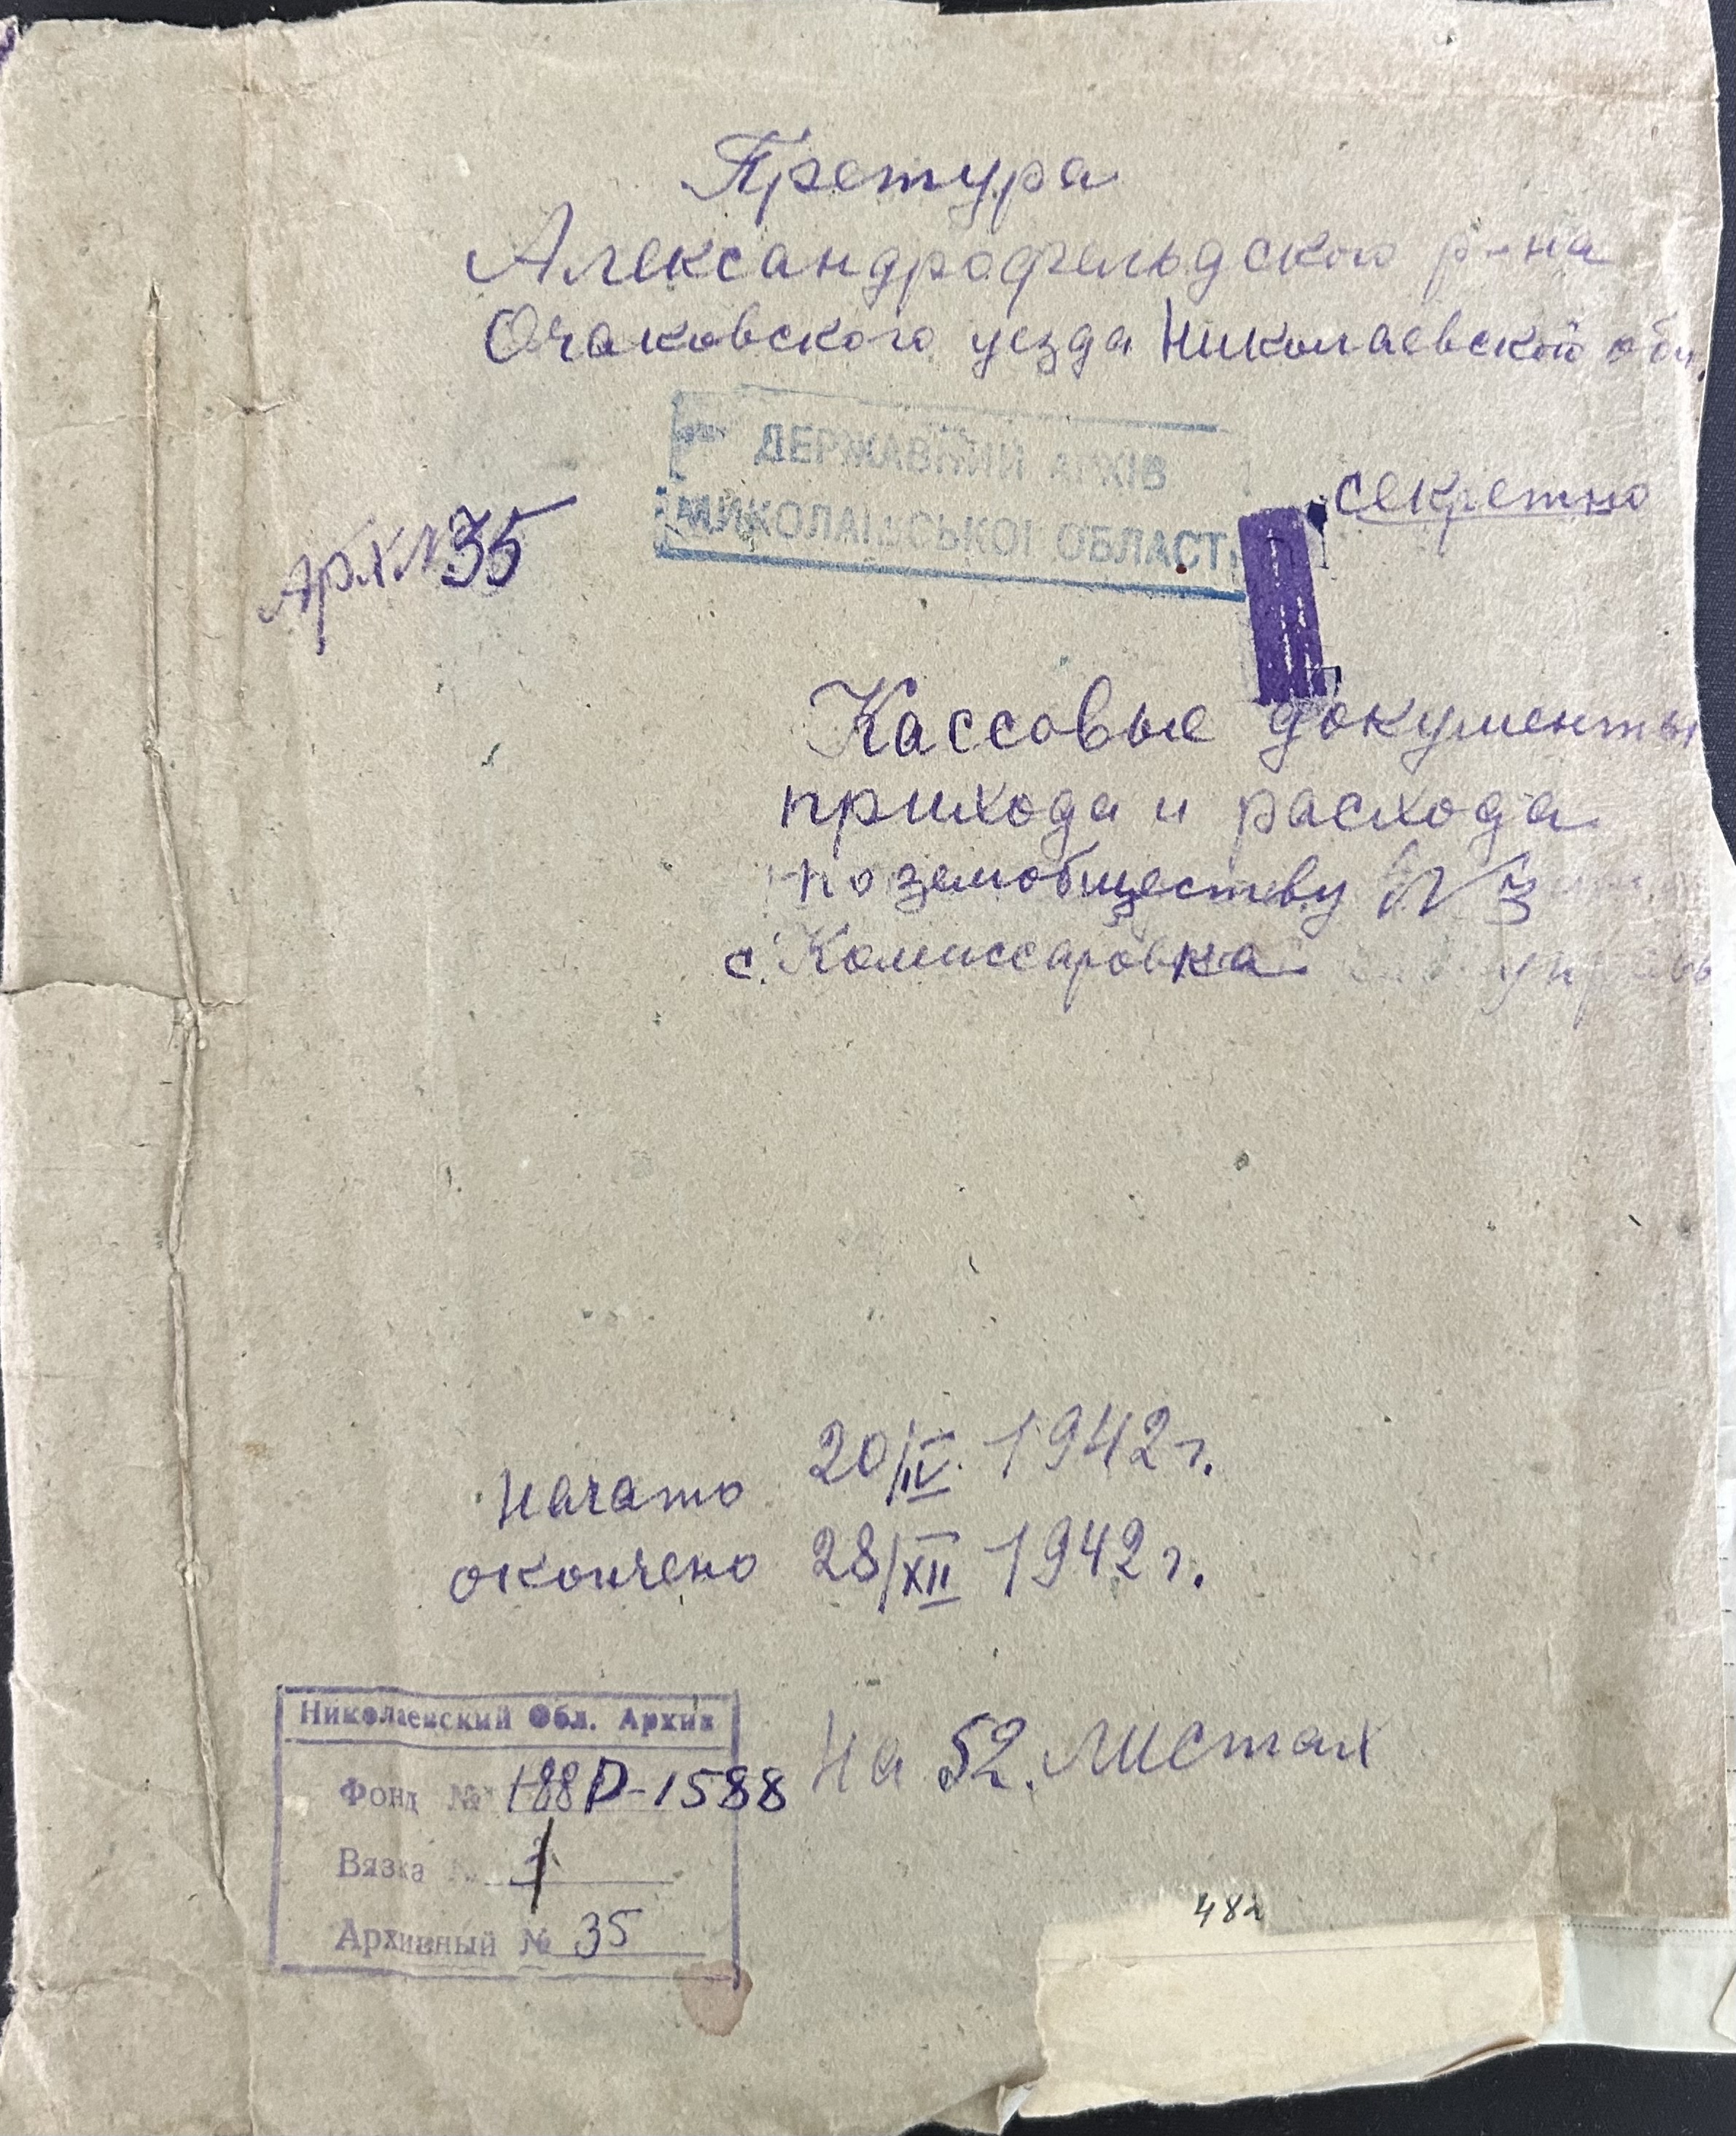 Претура
Александрофельдского р-на
Очаковского уезда Николаевской обл.
ДЕРЖАВНИЙ АРХІВ
МИКОЛАЇВСЬКОЇ ОБЛАСТІ
секретно
Арх№35
Кассовые документы
прихода и расхода
по земобществу № 3
с. Комиссаровка
начато 20/IV. 1942 г.
окончено 28/XII 1942 г.
Николаевский Обл. Архив
Фонд № 188 Р-1588
на 52 листах
Вязка № 1
Архивный № 35
482